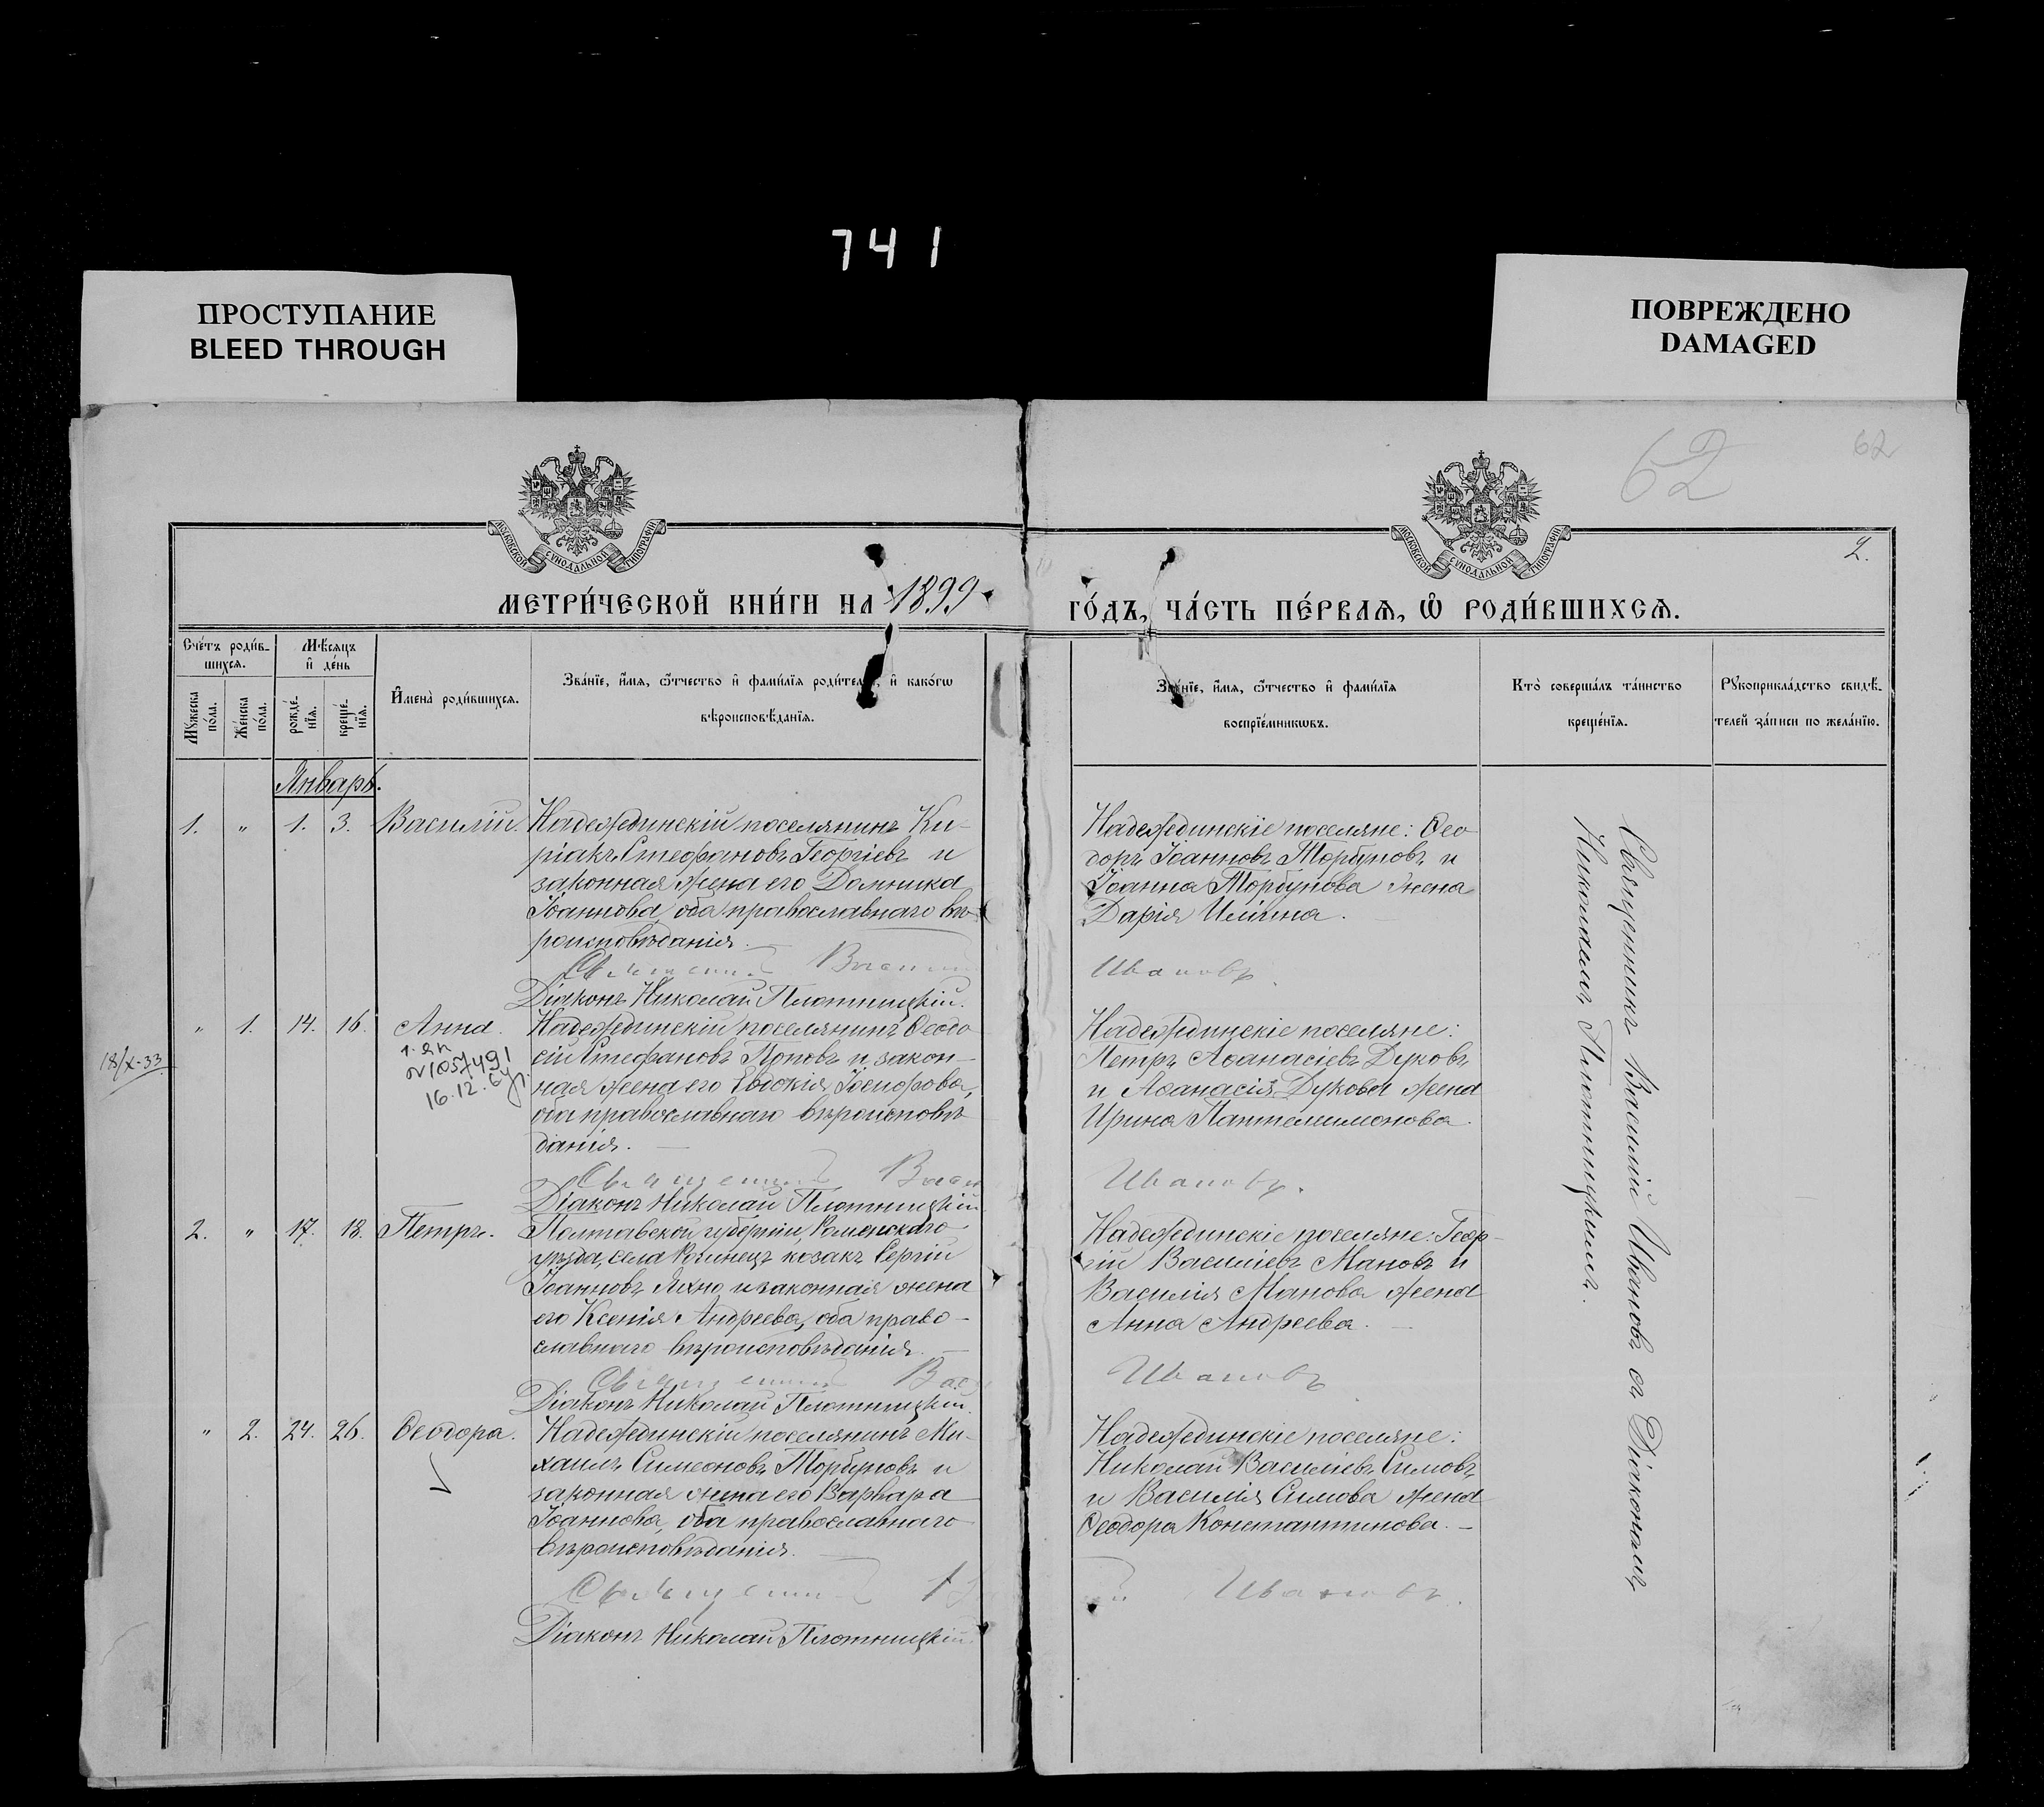 741
ПРОСТУПАНИЕ
BLEED THROUGH
ПОВРЕЖДЕНО
DAMAGED
62
62
2.
МОСКОВСКОЙ СѴНОДАЛЬНОЙ ТИПОГРАФІИ
МОСКОВСКОЙ СѴНОДАЛЬНОЙ ТИПОГРАФІИ
МЕТРИ́ЧЕСКОЙ КНИ́ГИ НА 1899
ГО́ДЪ, ЧА́СТЬ ПЕ́РВАѦ, Ѽ РОДИ́ВШИХСѦ.
Счéтъ роди́в-
шихсѧ.
Мꙋ́жеска
по́ла.
Же́нска
по́ла.
Мѣ́сѧцъ
и҆ де́нь
рожде́-
нїѧ.
креще́-
нїѧ.
И҆мена̀ роди́вшихсѧ.
Зва́нїе, и҆́мѧ, ѻ҆́тчество и҆ фами́лїѧ роди́телей, и҆ како́гѡ
вѣроисповѣ́данїѧ.
Зва́нїе, и҆́мѧ, ѻ҆́тчество и҆ фами́лїѧ
воспрїе́мникѡвъ.
Кто̀ соверша́лъ та́инство
креще́нїѧ.
Рꙋкоприкла́дство свидѣ́-
телей за́писи по жела́нїю.
Январь.
1. " 1. 3. Василій.
Надеждинскій поселянинъ Ки-
ріакъ Стефановъ Георгіевъ и
законная жена его Домника
Іоаннова, оба православнаго вѣ-
роисповѣданія.
Священникъ Василій Ивановъ
Діаконъ Николай Плотницкій.
Надеждинскіе поселяне: Ѳео
доръ Іоанновъ Торбуновъ и
Іоанна Торбунова жена
Дарія Илiина.
" 1. 14. 16. Анна.
18/X-33
1. ЯП
№1057491
16.12.
Надеждинскій поселянинъ Ѳеодо
сій Стефановъ Поповъ и закон-
ная жена его Евдокія Іосифова,
оба православнаго вѣроисповѣ
данія.
Священникъ Васил
Ивановъ.
Діаконъ Николай Плотницкій
Надеждинскіе поселяне:
Петръ Аѳанасіевъ Дуковъ
и Аѳанасія Дукова жена
Ирина Пантелимонова.
2. " 17. 18. Петръ.
Полтавской губерніи, Роменскаго
уѣзда, села козакъ Сергій
Іоанновъ Яхно и законная жена
его Ксенія Андреева, оба право-
славнаго вѣроисповѣданія.
Священникъ Вас
Ивановъ
Діаконъ Николай Плотницкій.
Надеждинскіе поселяне: Геор-
гій Василіевъ Мановъ и
Василія Манова жена
Анна Андреева.
" 2. 24. 26. Ѳеодора.
Надеждинскій поселянинъ Ми-
хаилъ Симеоновъ Торбуновъ и
законная жена его Варвара
Іоаннова, оба православнаго
вѣроисповѣданія.
Священникъ
Ивановъ.
Діаконъ Николай Плотницкій.
Надеждинскіе поселяне:
Николай Василіевъ Симовъ
и Василія Симова жена
Ѳеодора Константинова.
Священникъ Василій Ивановъ съ Діакономъ
Николаемъ Плотницкимъ.